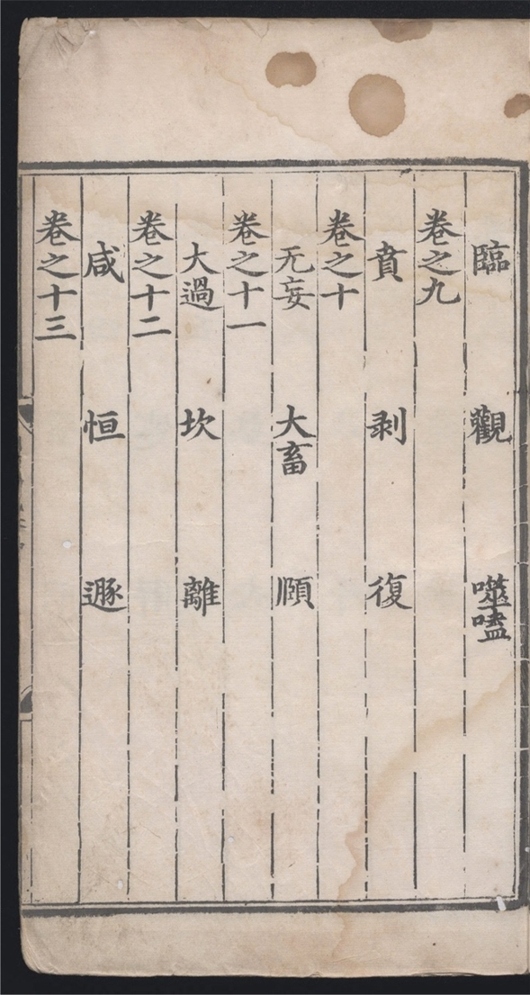 臨 觀 噬嗑
卷之九
賁 剥 復
卷之十
无妄 大畜 頤
卷之十一
大過 坎 離
卷之十二
咸 恒 遯
卷之十三